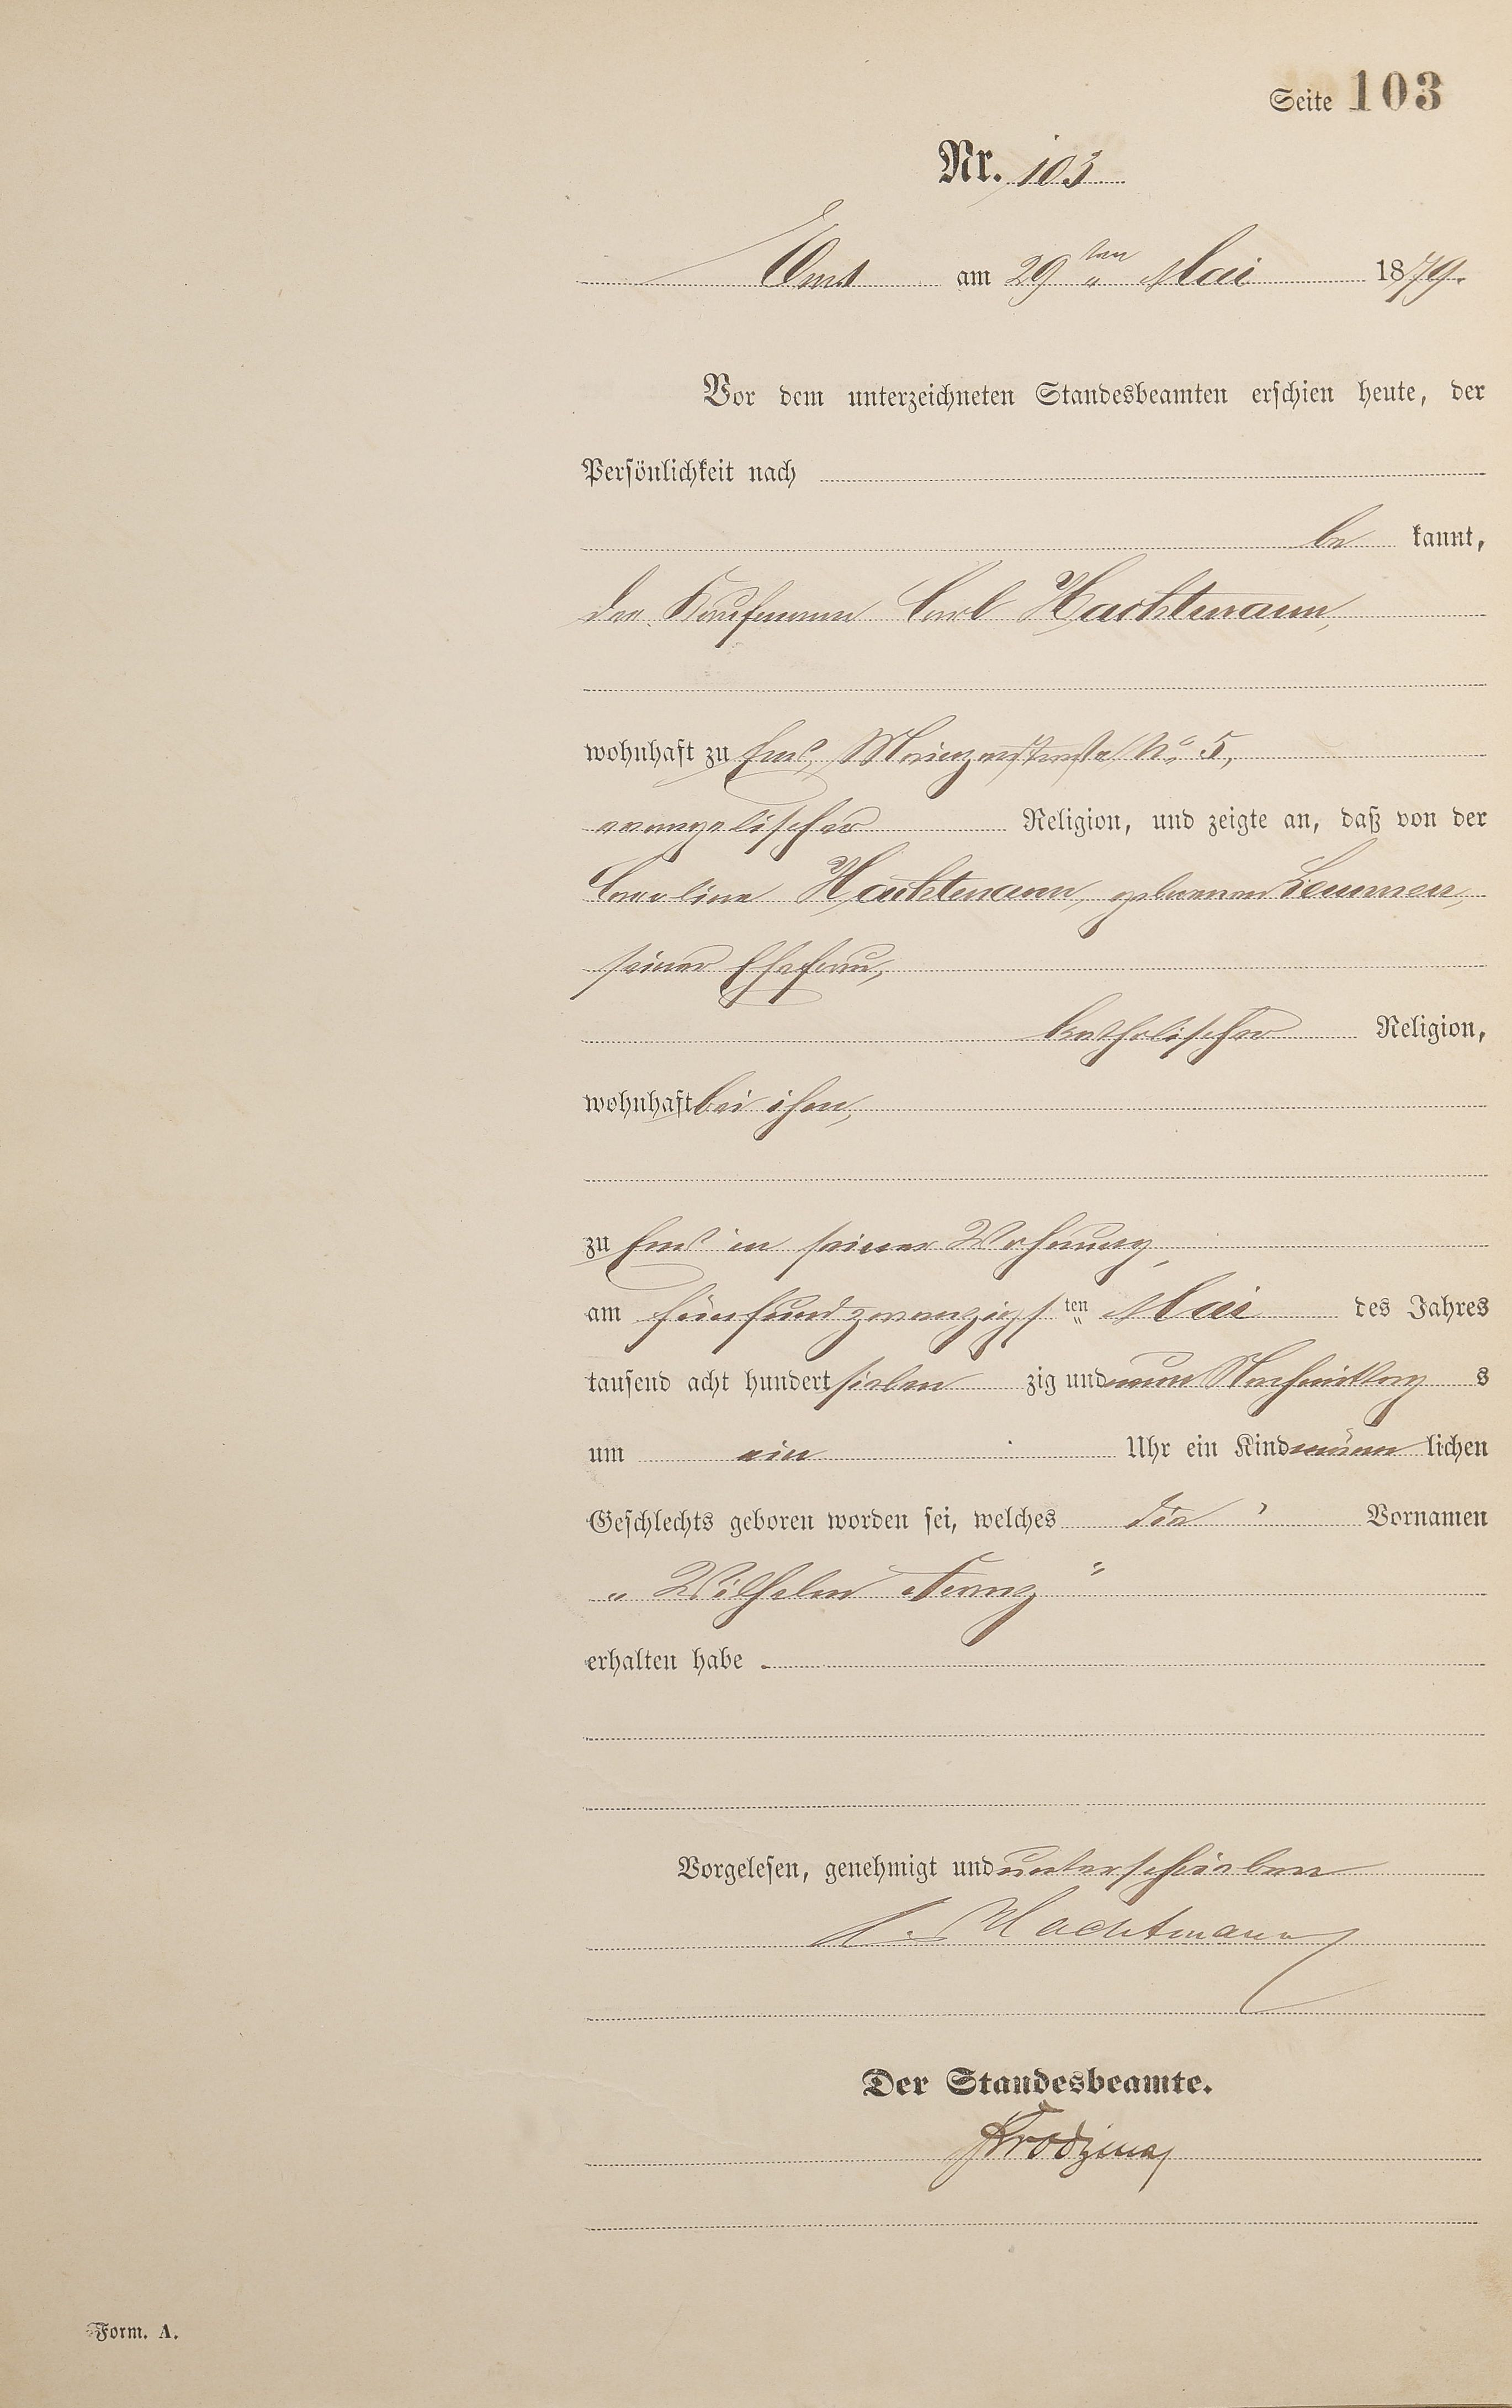 Seite 103
Nr. 103
Ems am 29ten Mai 1879.
Vor dem unterzeichneten Standesbeamten erschien heute, der
Persönlichkeit nach
be kannt,
der Kaufmann Carl Hachtmann,
wohnhaft zu Ems, Mainzerstraße No. 5,
evangelischer Religion, und zeigte an, daß von der
Caroline Hachtmann, geborenen Lemmen,
seiner Ehefrau,
katholischer Religion,
wohnhaft bei ihm,
zu Ems in seiner Wohnung,
am fünfundzwanzigsten Mai des Jahres
tausend acht hundert sieben zig und neun Nachmittag s
um ein Uhr ein Kind männ lichen
Geschlechts geboren worden sei, welches die Vornamen
„Wilhelm Franz“
erhalten habe.
Vorgelesen, genehmigt und unterschrieben
C. Hachtmann
Der Standesbeamte.
Form. A.